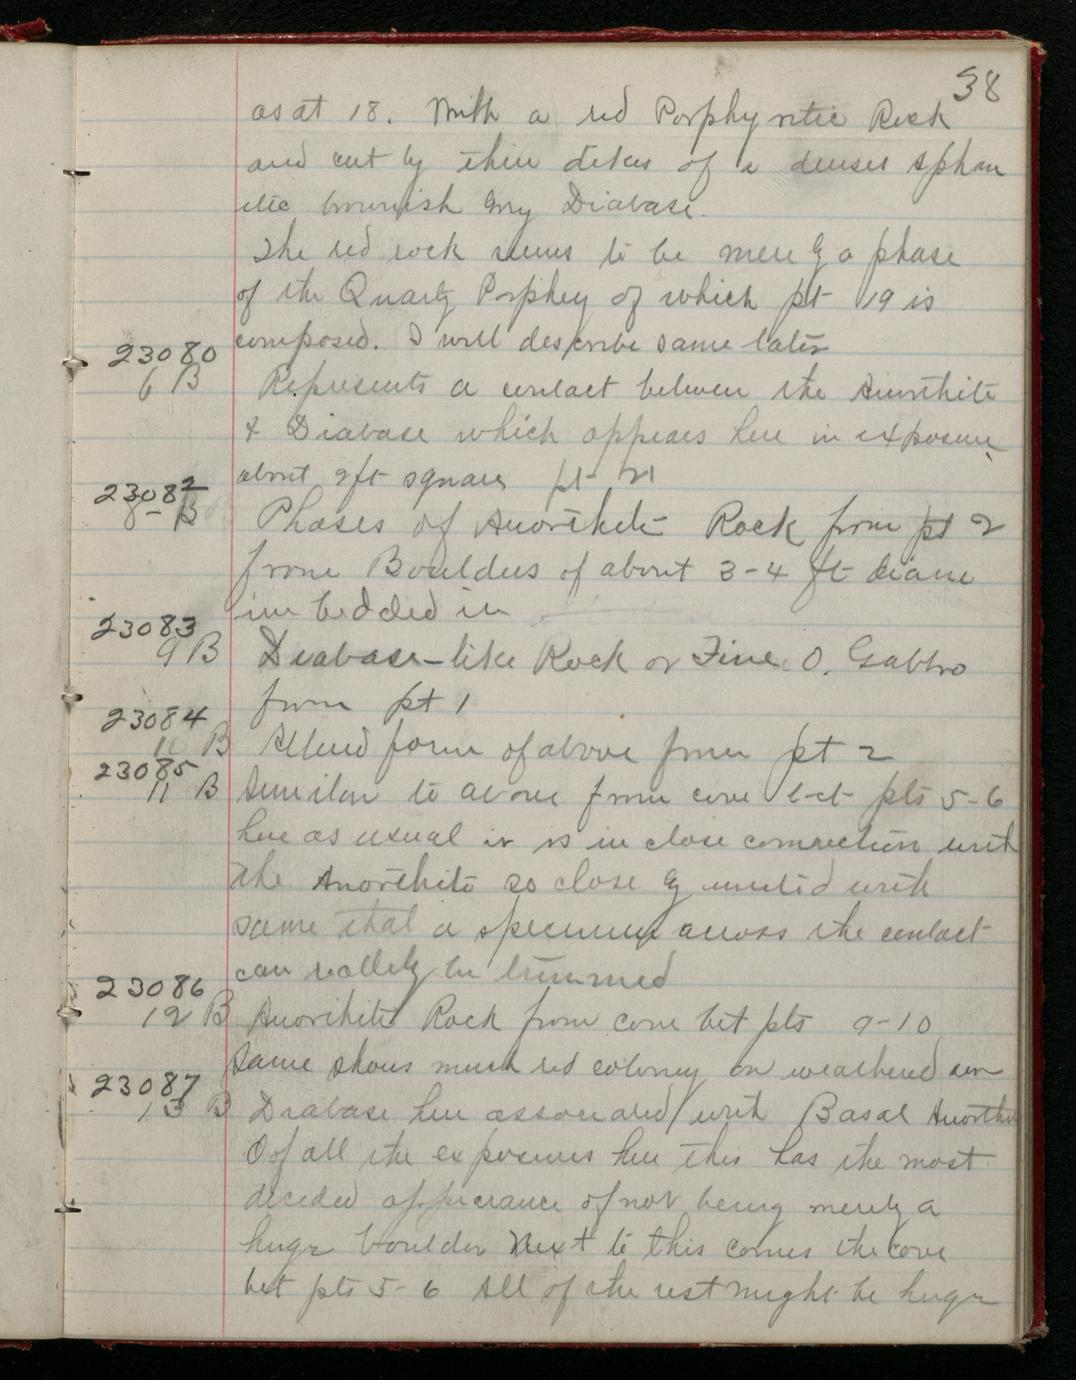 38
as at 18. With a red Porphyritic Rock
and cut by thin dikes of a denses Aphan
itic brownish gray Diabase.
The red rock seems to be merely a phase
of the Quartz Porphry of which pt 19 is
composed. I will describe same later
23080
6 B Represents a contact between the Anorthite
& Diabase which appears here in exposure
about 2ft square pt 21
23082
8 - B Phases of Anorthite Rock from pt 2
from Boulders of about 3-4 ft diam
imbedded in
23083
9 B Diabase-like Rock or Fine O. Gabbro
from pt 1
23084
10 B Altered form of above from pt 2
23085
11 B Similar to above from cove bet pts 5-6
here as usual it is in close connection with
the Anorthite so closely united with
same that a specimen across the contact
can readily be trimmed
23086
12 B Anorthite Rock from cove bet pts 9-10
Same shows much red coloring on weathered sur
23087
13 B Diabase here associated with Basal Anorthite
Of all the exposures here this has the most
decided appearance of not being merely a
huge boulder Next to this comes the cove
bet pts 5-6 All of the rest might be huge